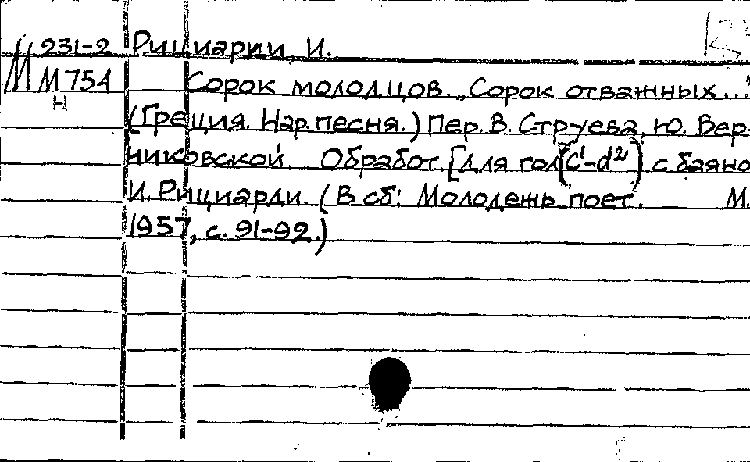 М 231-2 Рициарии, И.
М 754 Сорок молодцов. „Сорок отважных..."
Н
(Греция. Нар. песня.) Пер. В. Струева, Ю. Вер
никовской. Обработ. [для гол. (c¹-d²) с баяно
И. Рициарди. (В сб: Молодежь поет. М.
1957, с. 91-92.)